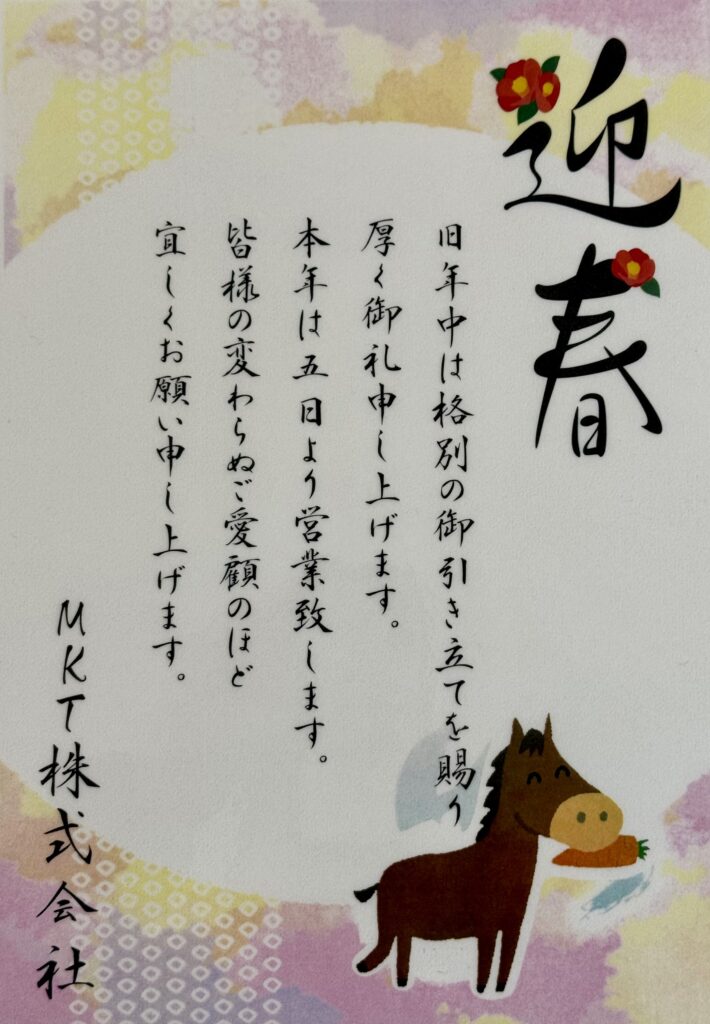 迎春
旧年中は格別の御引き立てを賜り
厚く御礼申し上げます。
本年は五日より営業致します。
皆様の変わらぬご愛顧のほど
宜しくお願い申し上げます。
MKT株式会社